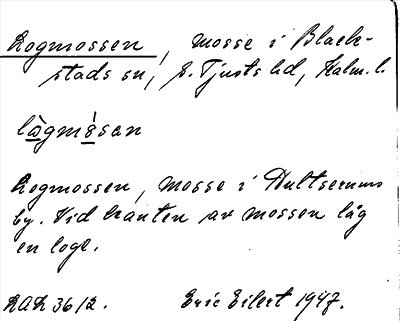 Logmossen, mosse i Black-
stads sn, S. Tjusts hd, Kalm. l.
lògmósan
Logmossen, mosse i Hultserums
by. Vid kanten av mossen låg
en loge.
RAÄ 36/2. Eric Eilert 1947.